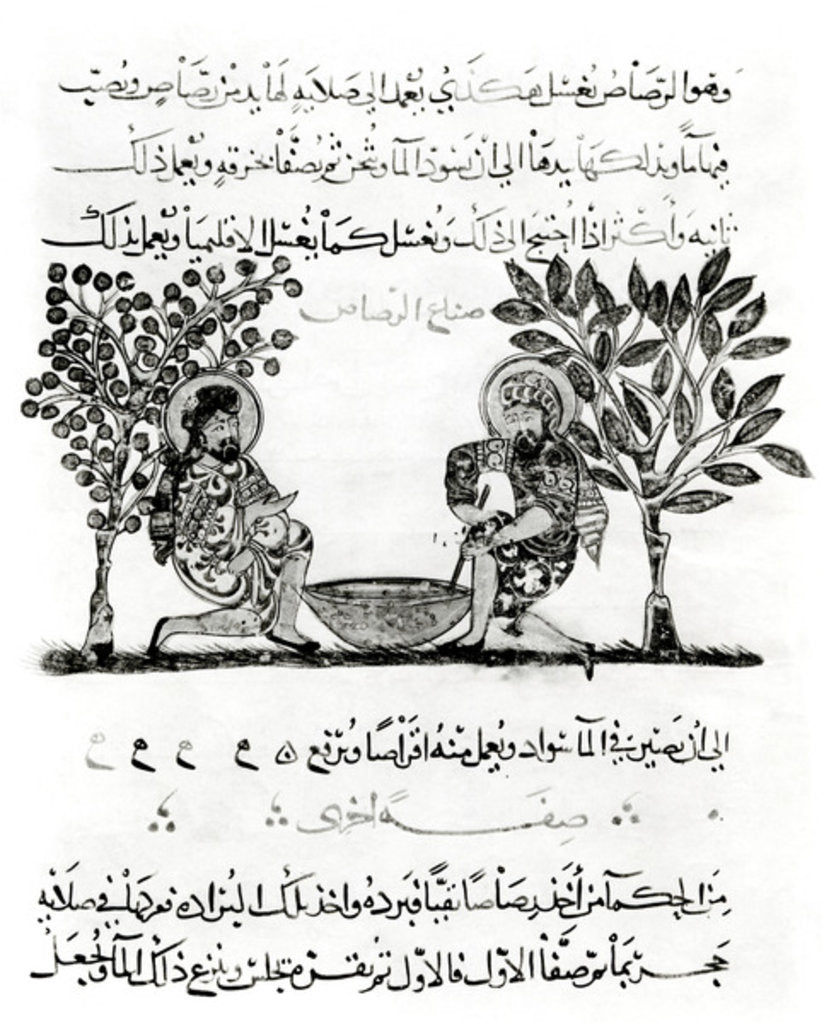 وهو الرصاص يغسل هكذى يعمد الى صلايه لها يد من رصاص ويصب
فيها ما ويدلك بها يدها الى ان يسود الما ويثخن ثم يصفا بخرقه ويعمل ذلك
ثانيه واكثر اذا احتيج الى ذلك ويغسل كما يغسل الاقليميا ويعمل بذلك
صناع الرصاص
الى ان يصير في الما سواد ويعمل منه اقراصا ويرفع
صفه اخرى
من الحكما من أخذ رصاصا نقيا فبرده واخذ تلك البراده فعركها في صلايه
حجر بما ثم صفا الاول فالاول ثم يقره تجلس وينزع ذلك الما ويجعل